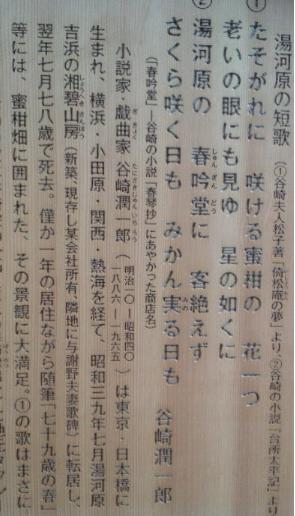 湯河原の短歌（①谷崎夫人松子著「倚松庵の夢」より、②谷崎の小説「台所太平記」より
① たそがれに 咲ける蜜柑の 花一つ
老いの眼にも見ゆ 星の如くに
② 湯河原の 春吟堂に 客絶えず
さくら咲く日も みかん実る日も 谷崎潤一郎
（「春吟堂」―谷崎の小説「春琴抄」にあやかった商店名）
小説家・戯曲家 谷崎潤一郎（明治一〇―昭和四〇 一八八六―一九六五）は東京・日本橋に
生まれ、横浜・小田原・関西・熱海を経て、昭和三九年七月湯河原
吉浜の湘碧山房（新築、現存し某会社所有、隣地に与謝野夫妻歌碑）に転居し、
翌年七月七八歳で死去。僅か一年の居住ながら随筆「七十九歳の春」
等には、蜜柑畑に囲まれた、その景観に大満足。①の歌はまさに